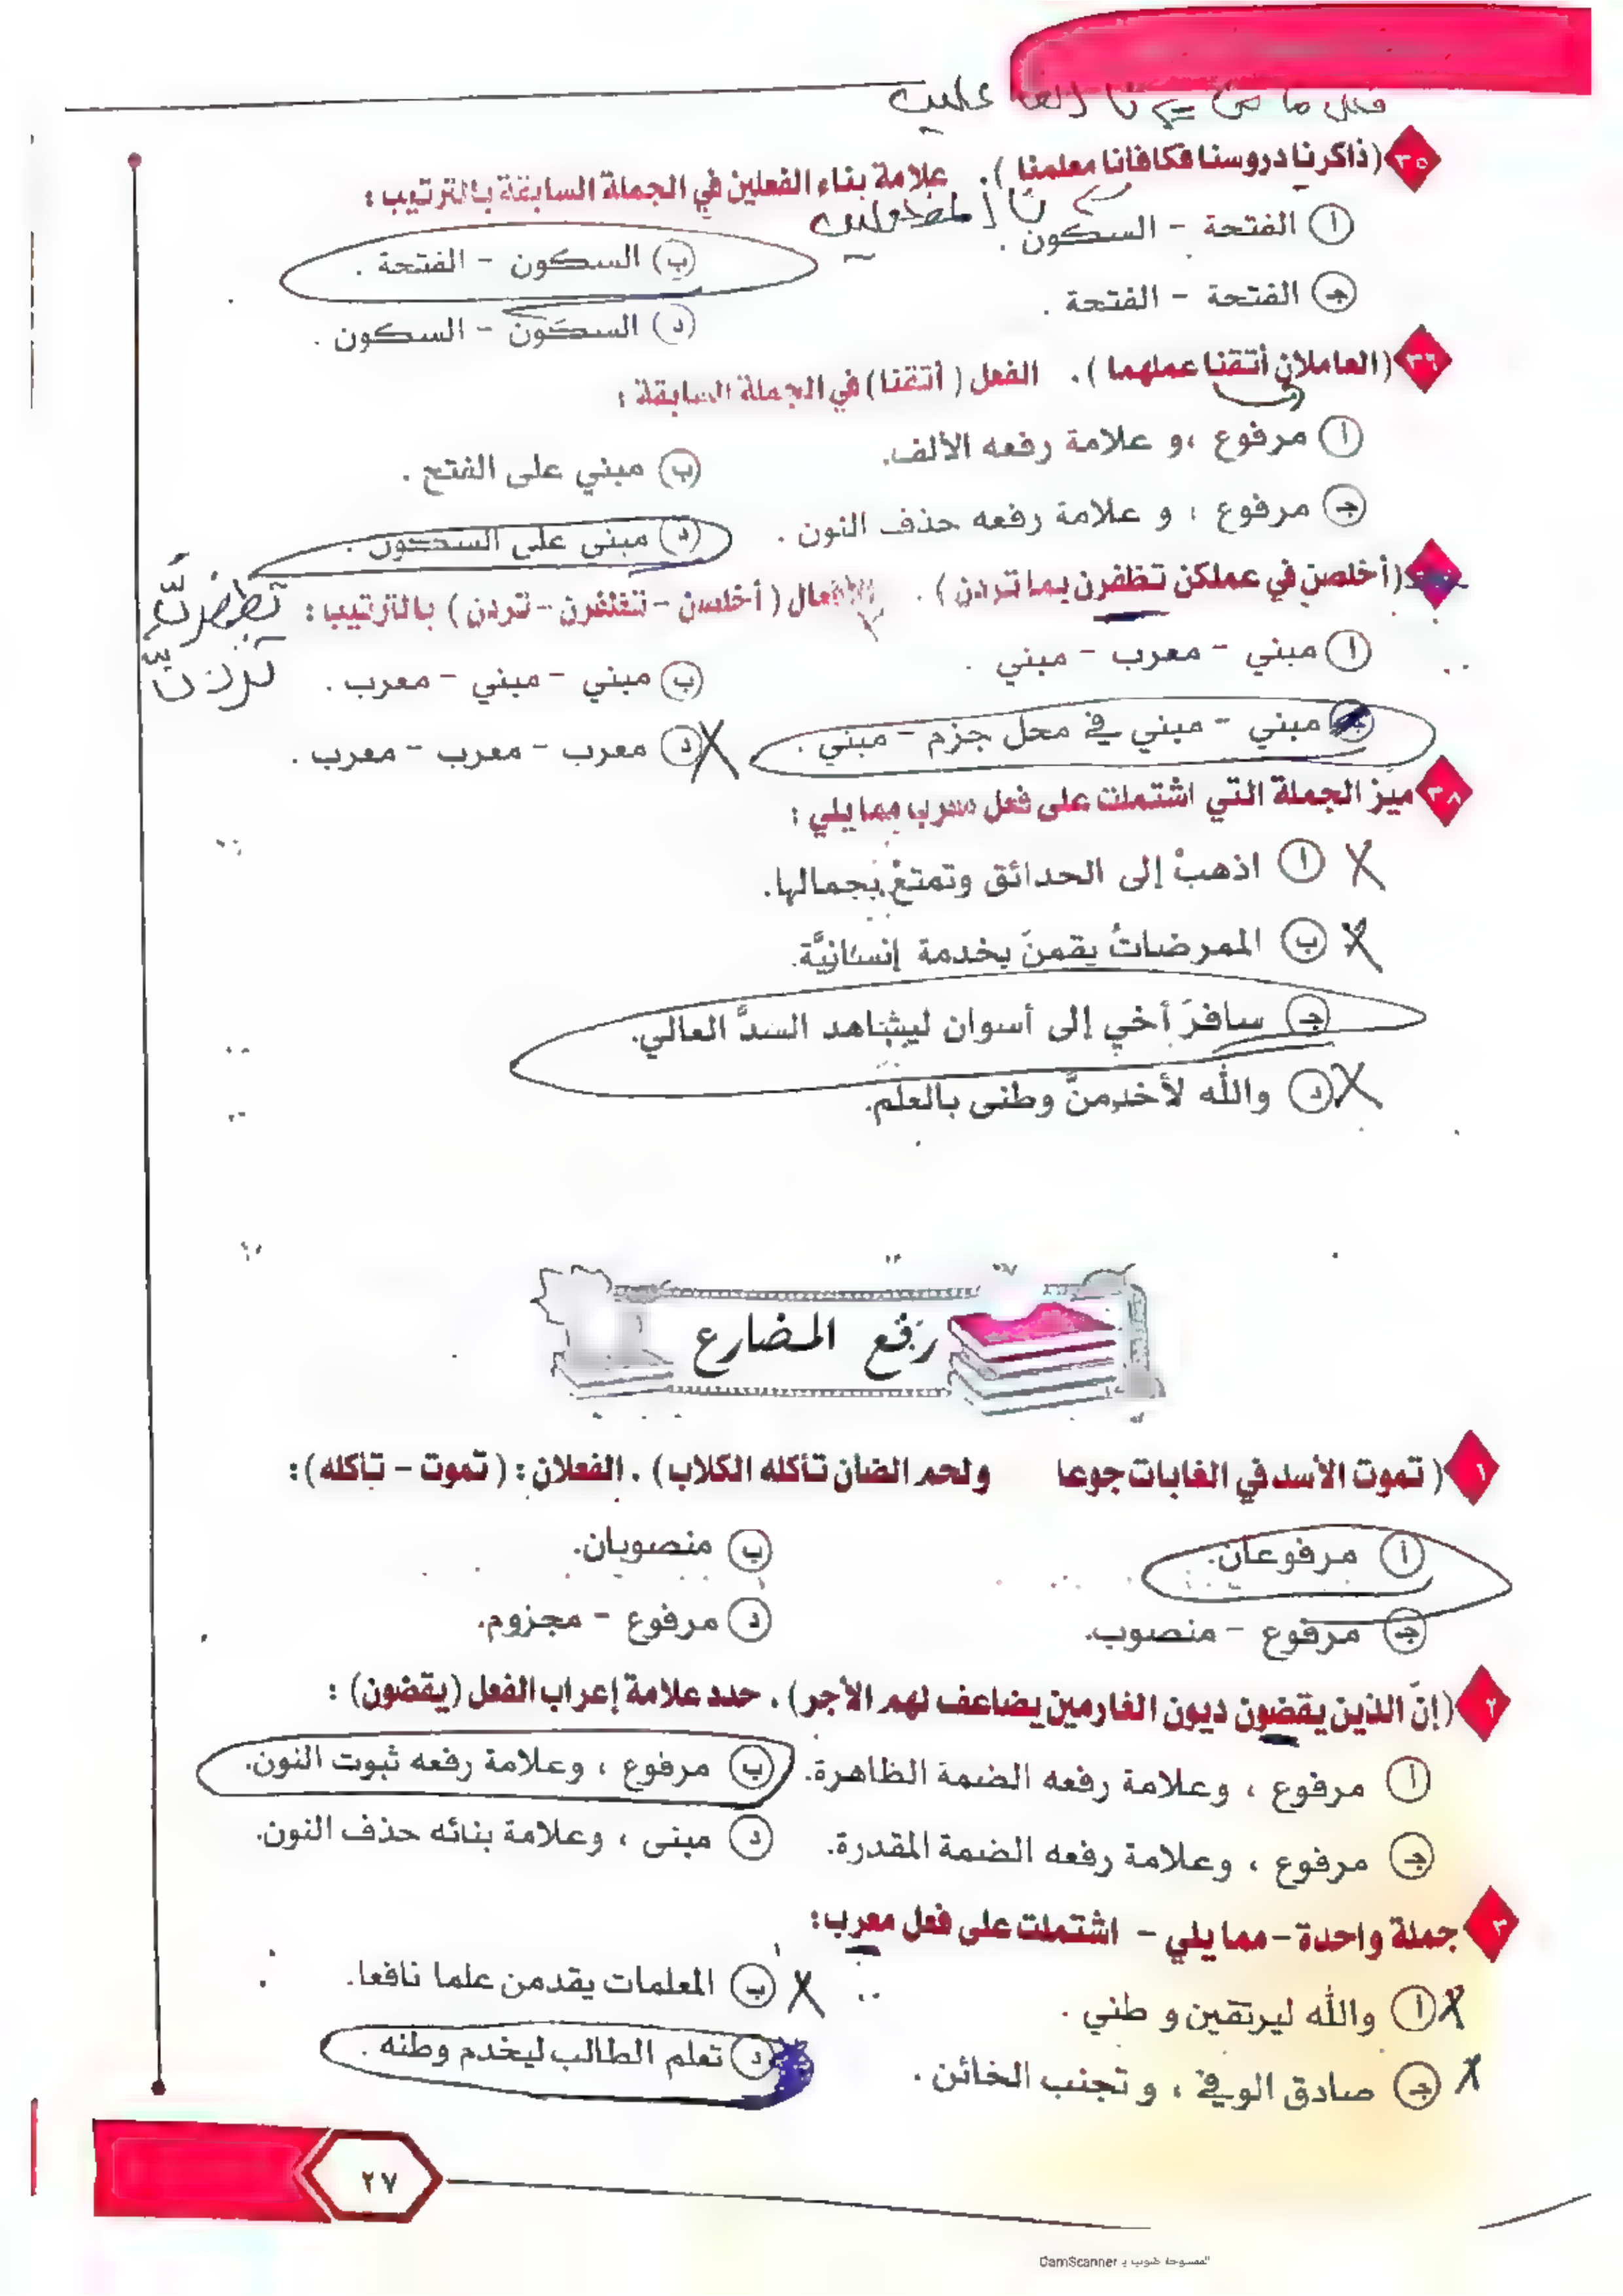 فعل ماضى = نا الفاعلين
٣٥ (ذاكرنا دروسنا فكافانا معلمنا ) . علامة بناء الفعلين في الجملة السابقة بالترتيب :
نا المفعولين
أ الفتحة - السكون .
ب السكون - الفتحة .
جـ الفتحة - الفتحة .
د السكون - السكون .
٣٦ (العاملان أتقنا عملهما ) . الفعل ( أتقنا ) في الجملة السابقة :
أ مرفوع ،و علامة رفعه الألف.
ب مبني على الفتح .
جـ مرفوع ، و علامة رفعه حذف النون .
د مبنى على السكون .
(أخلصن في عملكن تظفرن بما تردن ) . الأفعال ( أخلصن - تظفرن - تردن ) بالترتيب :
تظفرنّ
تردنّ
أ مبني - معرب - مبني .
ب مبني - مبني - معرب .
جـ مبني - مبني في محل جزم - مبني .
د معرب - معرب - معرب .
٣٨ ميّز الجملة التي اشتملت على فعل معرب مما يلي :
أ اذهبْ إلى الحدائق وتمتعْ بجمالها.
ب الممرضاتُ يقمنَ بخدمة إنسانيَّة.
جـ سافرَ أخي إلى أسوان ليشاهد السدَّ العالي.
د والله لأخدمنَّ وطنى بالعلم.
رفع المضارع
١ ( تموت الأسد في الغابات جوعا ولحم الضأن تأكله الكلاب ) . الفعلان : ( تموت - تأكله ) :
أ مرفوعان.
ب منصوبان.
جـ مرفوع - منصوب.
د مرفوع - مجزوم.
٢ (إنّ الذين يقضون ديون الغارمين يضاعف لهم الأجر) . حدد علامة إعراب الفعل (يقضون) :
أ مرفوع ، وعلامة رفعه الضمة الظاهرة.
ب مرفوع ، وعلامة رفعه ثبوت النون.
جـ مرفوع ، وعلامة رفعه الضمة المقدرة.
د مبنى ، وعلامة بنائه حذف النون.
٣ جملة واحدة - مما يلي - اشتملت على فعل معرب:
أ والله ليرتقين و طني .
ب المعلمات يقدمن علما نافعا.
جـ صادق الوفي ، و تجنب الخائن .
د تعلم الطالب ليخدم وطنه .
٢٧
الممسوحة ضوئيا بـ CamScanner